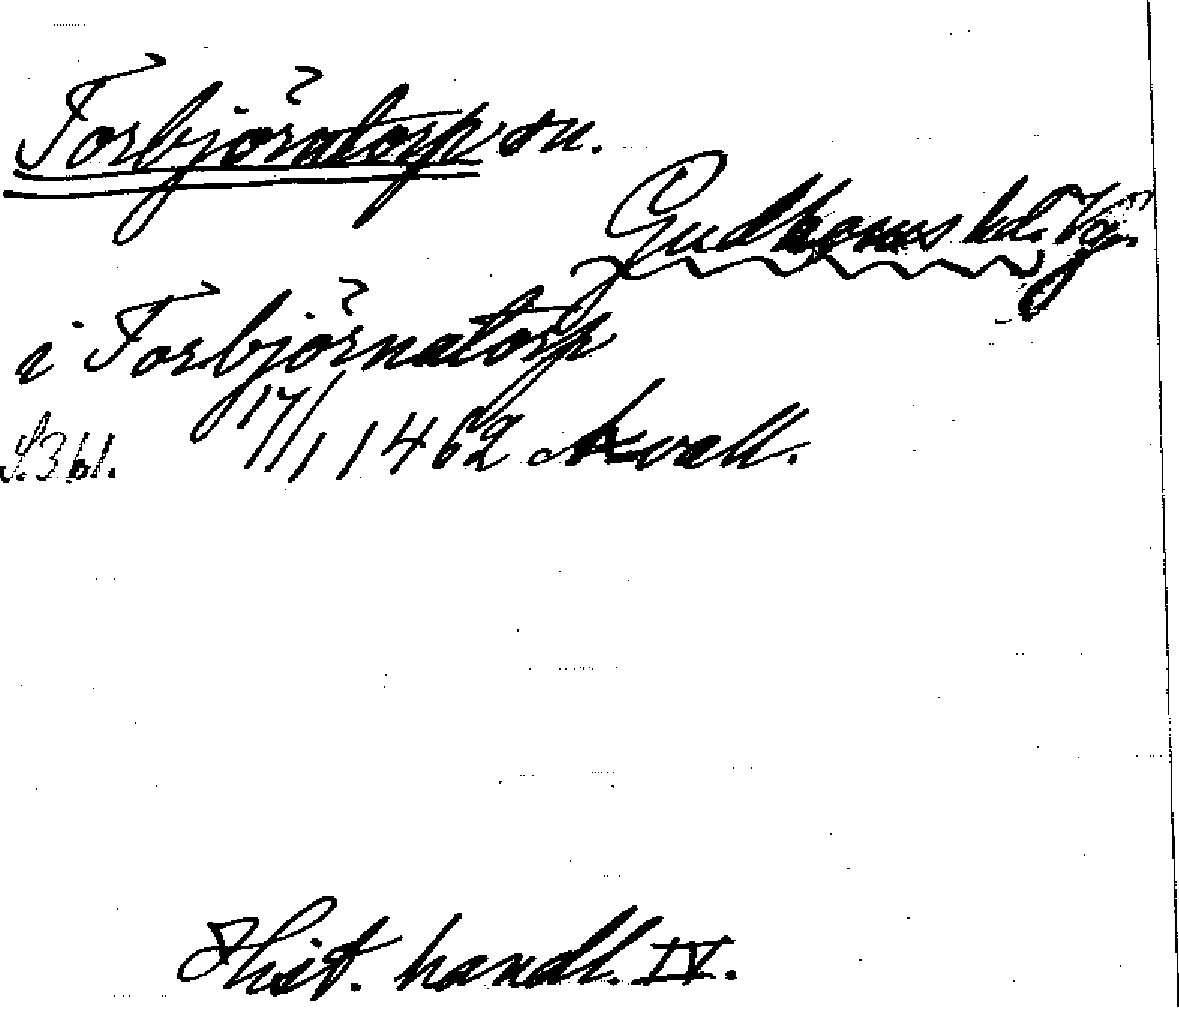 Torbjörntorp sn.
Gudhems hd. Vg.
i Torbjörnatorp
S. 361. 17/1 1462 Avall.
Hist. handl. IV.